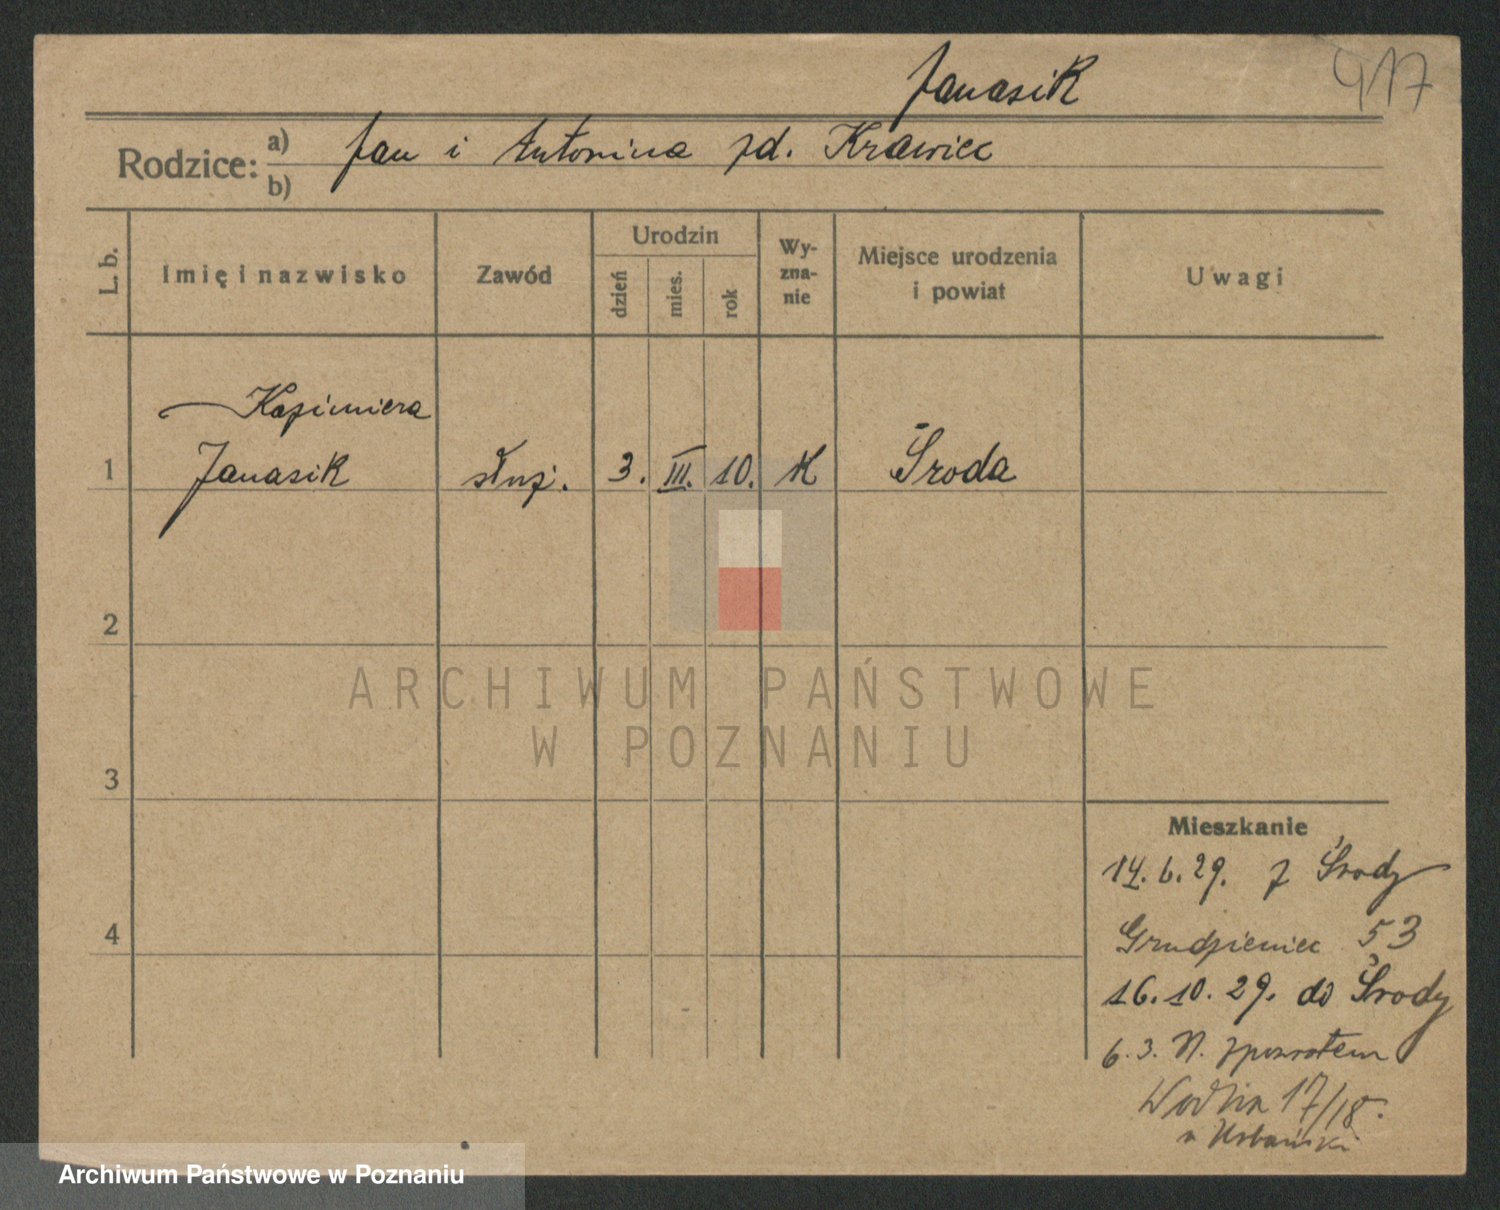 Janasik
417
Rodzice: a) Jan i Antonina zd. Krawiec
b)
L. b.
Imię i nazwisko
Zawód
Urodzin
dzień
mies.
rok
Wy-
zna-
nie
Miejsce urodzenia
i powiat
Uwagi
Kazimiera
1 Janasik służ. 3. III. 10. K Środa
2
3
4
ARCHIWUM PAŃSTWOWE
W POZNANIU
Mieszkanie
14. 6. 29. z Środy
Grudzieniec 53
16. 10. 29. do Środy
6. 3. zpowrotem
Wodna 17/18.
Urbański
Archiwum Państwowe w Poznaniu